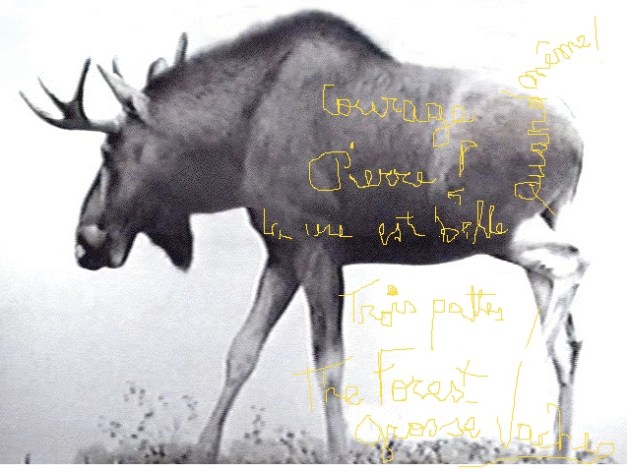 Courage
Pierre !
la vie est belle
Quand même!
Trois pattes
The Forest
grosse Vaches